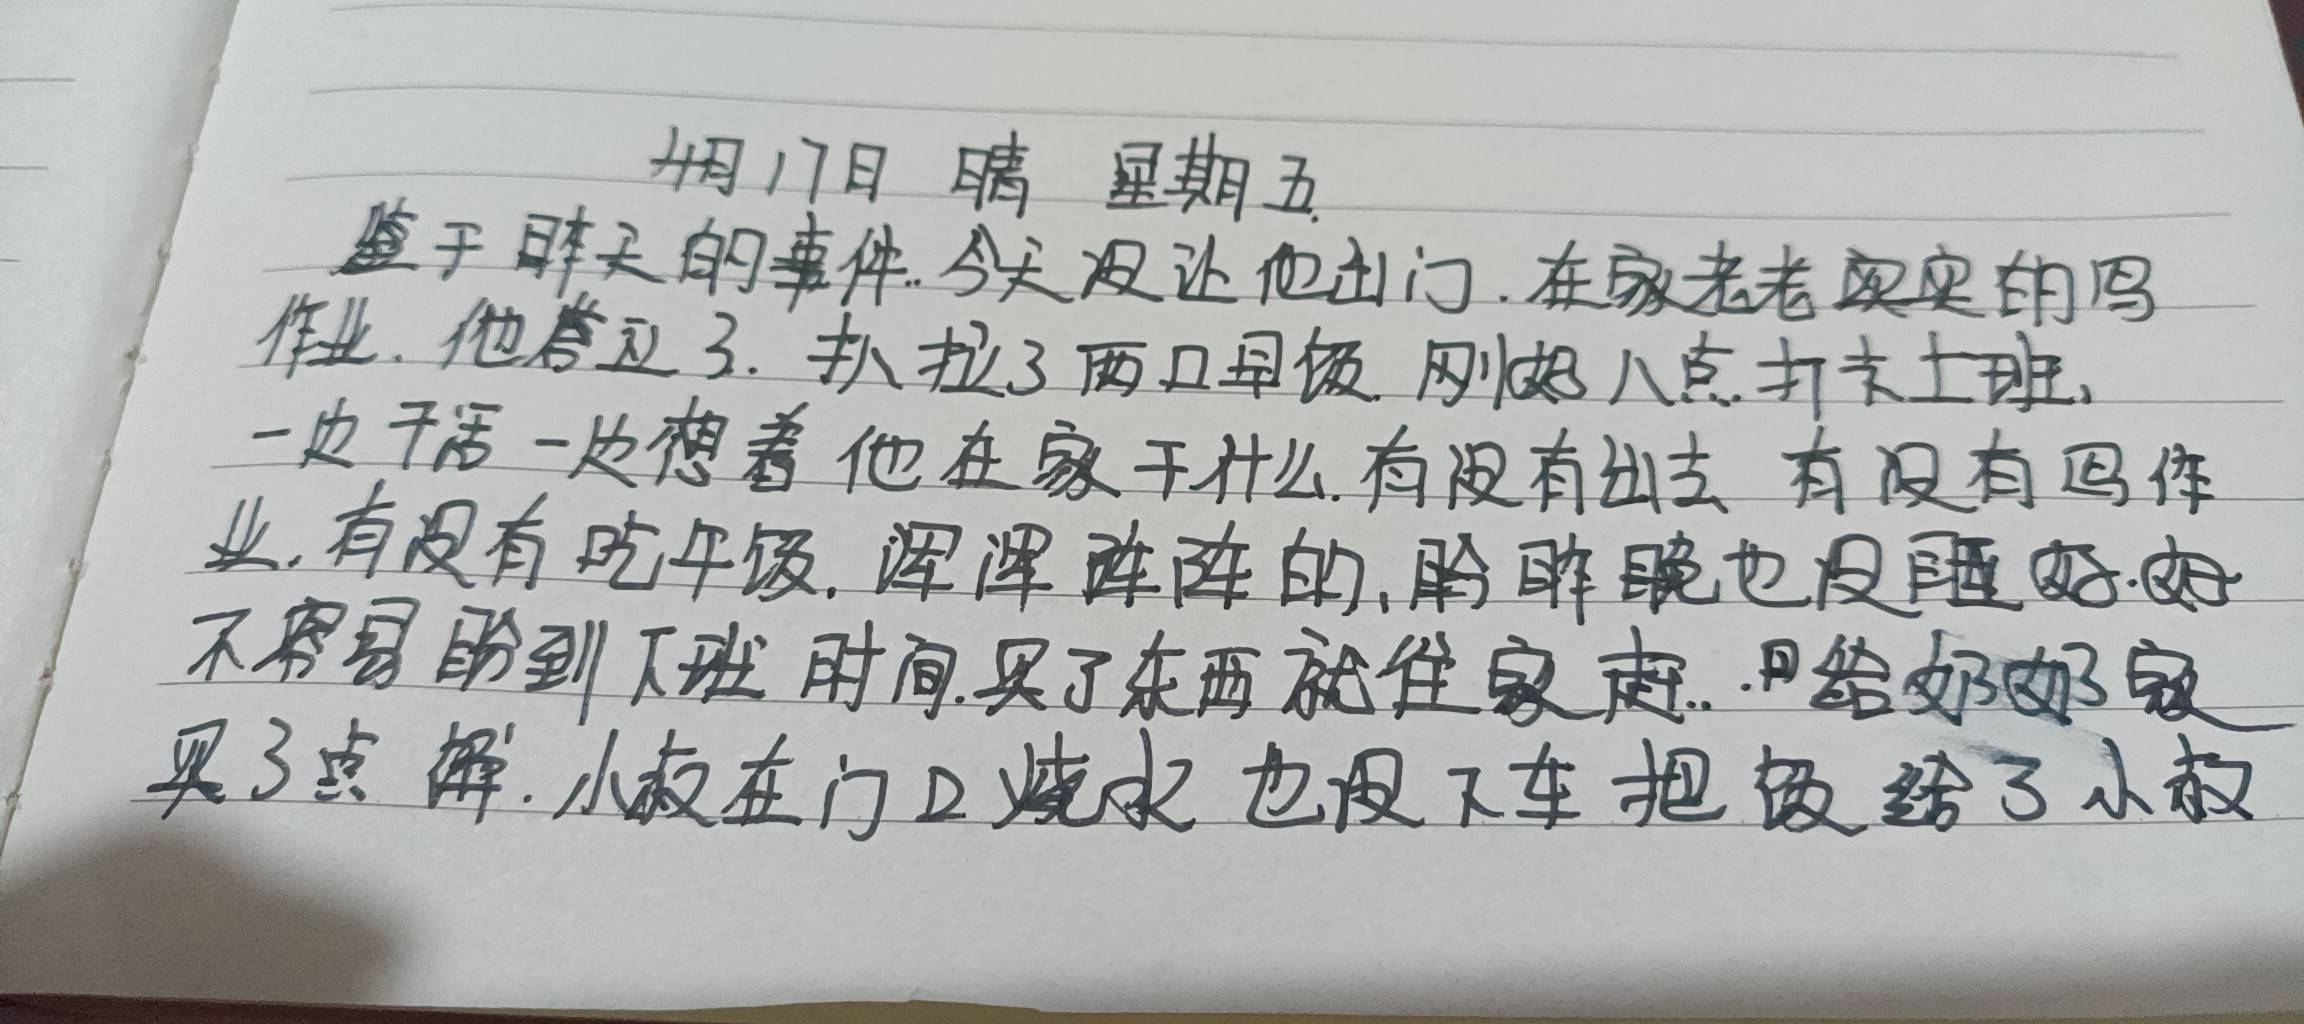 4月17日 晴 星期五.
鉴于昨天的事件..今天没让他出门.在家老老实实的写
作业.他答应了.扒拉了两口早饭.刚好八点打卡上班,
一边干活一边想着他在家干什么.有没有出去 有没有写作
业.有没有吃午饭.浑浑阵阵的,昨晚也没睡好.好
不容易盼到下班时间.买了东西就往家赶..给奶奶家
买了点 .小叔在门口烧水 也没下车把饭给了小叔